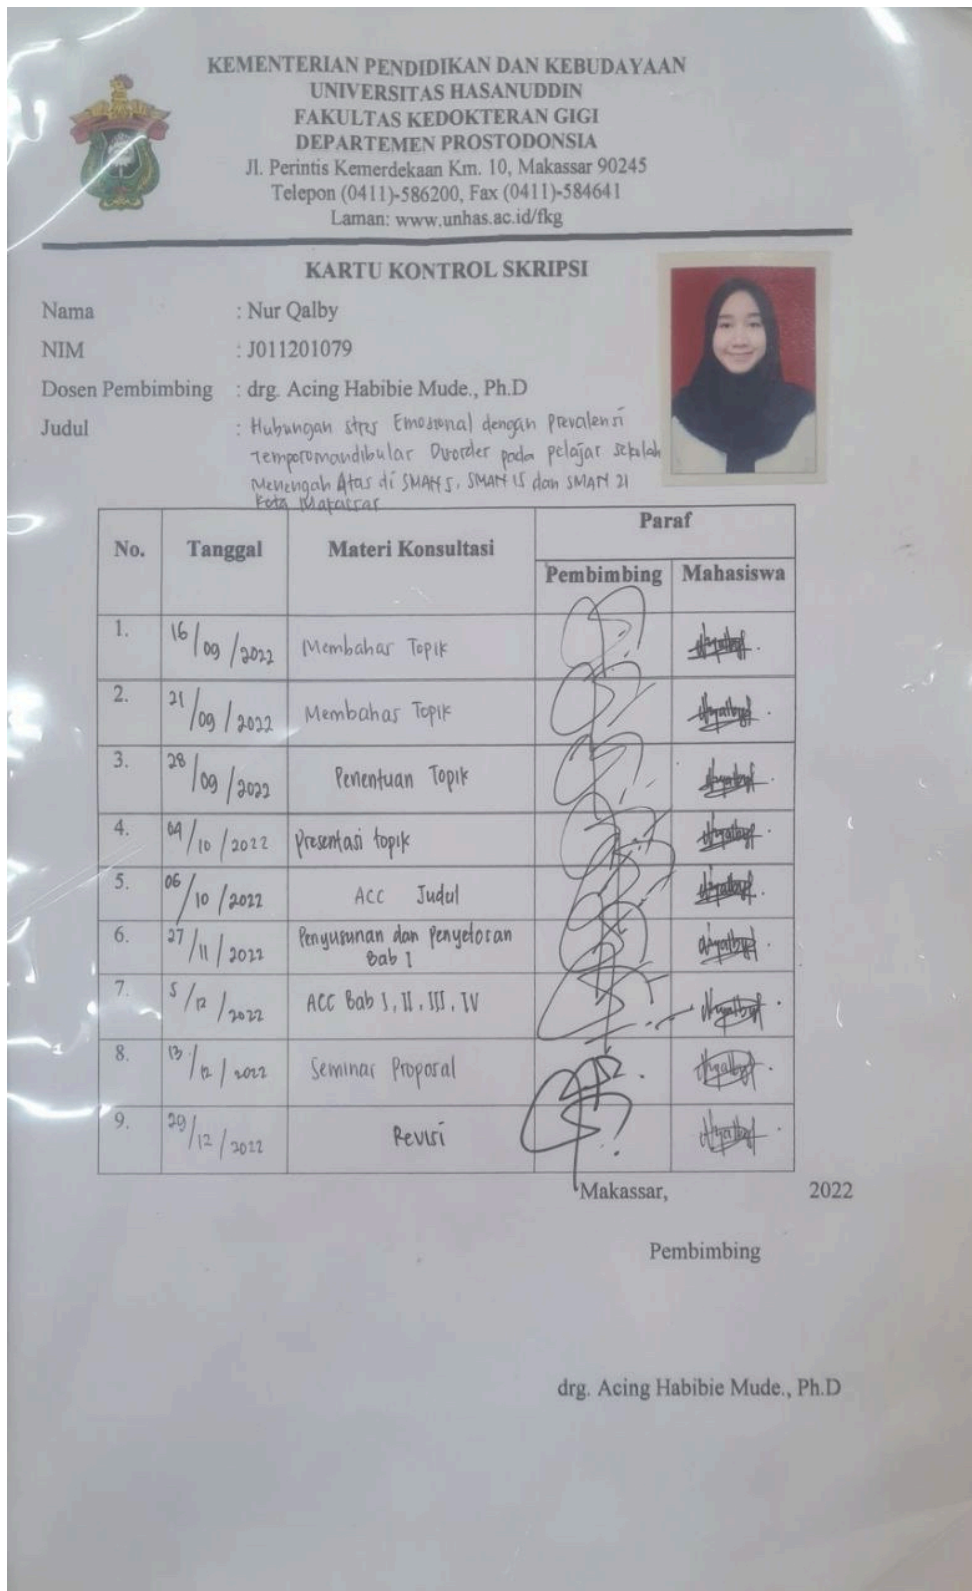 KEMENTERIAN PENDIDIKAN DAN KEBUDAYAAN
UNIVERSITAS HASANUDDIN
FAKULTAS KEDOKTERAN GIGI
DEPARTEMEN PROSTODONSIA
Jl. Perintis Kemerdekaan Km. 10, Makassar 90245
Telepon (0411)-586200, Fax (0411)-584641
Laman: www.unhas.ac.id/fkg
KARTU KONTROL SKRIPSI
Nama : Nur Qalby
NIM : J011201079
Dosen Pembimbing : drg. Acing Habibie Mude., Ph.D
Judul : Hubungan stres Emosional dengan Prevalensi
Temporomandibular Disorder pada pelajar sekolah
Menengah Atas di SMAN 5, SMAN 15 dan SMAN 21
Kota Makassar
No. Tanggal Materi Konsultasi Paraf
Pembimbing Mahasiswa
1. 16/09/2022 Membahas Topik
2. 21/09/2022 Membahas Topik
3. 28/09/2022 Penentuan Topik
4. 04/10/2022 Presentasi topik
5. 06/10/2022 ACC Judul
6. 27/11/2022 Penyusunan dan Penyetoran
Bab I
7. 5/12/2022 ACC Bab I, II, III, IV
8. 13/12/2022 Seminar Proposal
9. 29/12/2022 Revisi
Makassar, 2022
Pembimbing
drg. Acing Habibie Mude., Ph.D